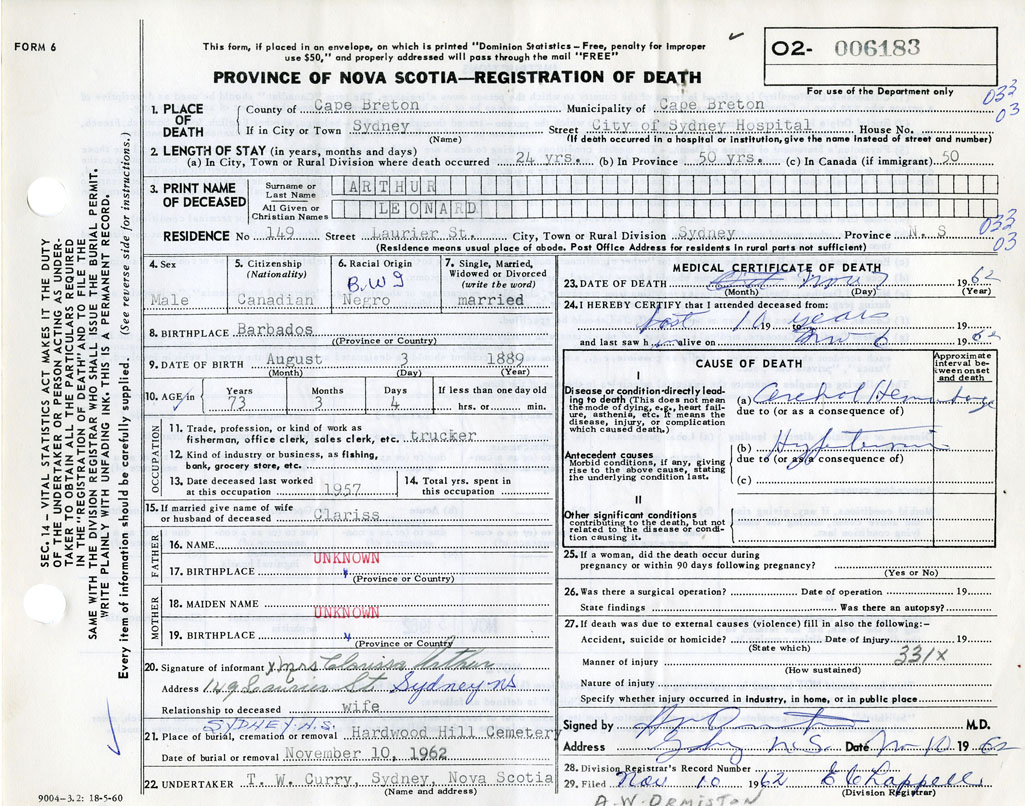 FORM 6
This form, if placed in an envelope, on which is printed "Dominion Statistics – Free, penalty for improper
use $50," and properly addressed will pass through the mail "FREE"
PROVINCE OF NOVA SCOTIA—REGISTRATION OF DEATH
O2- 006183
For use of the Department only
033
03
1. PLACE OF DEATH
County of Cape Breton Municipality of Cape Breton
If in City or Town Sydney Street City of Sydney Hospital House No.
(Name) (If death occurred in a hospital or institution, give the name instead of street and number)
2. LENGTH OF STAY (in years, months and days)
(a) In City, Town or Rural Division where death occurred 24 yrs. (b) In Province 50 yrs. (c) In Canada (if immigrant) 50
3. PRINT NAME OF DECEASED
Surname or Last Name ARTHUR
All Given or Christian Names LEONARD
033
03
RESIDENCE No 149 Street Laurier St. City, Town or Rural Division Sydney Province N. S
(Residence means usual place of abode. Post Office Address for residents in rural parts not sufficient)
SEC. 14 – VITAL STATISTICS ACT MAKES IT THE DUTY
OF THE UNDERTAKER OR PERSON ACTING AS UNDER-
TAKER TO OBTAIN ALL THE PARTICULARS REQUIRED
IN THE "REGISTRATION OF DEATH" AND TO FILE THE
SAME WITH THE DIVISION REGISTRAR WHO SHALL ISSUE THE BURIAL PERMIT.
WRITE PLAINLY WITH UNFADING INK. THIS IS A PERMANENT RECORD.
Every item of information should be carefully supplied. (See reverse side for instructions.)
4. Sex
Male
5. Citizenship
(Nationality)
Canadian
6. Racial Origin
B.W.I
Negro
7. Single, Married,
Widowed or Divorced
(write the word)
married
8. BIRTHPLACE Barbados
(Province or Country)
9. DATE OF BIRTH August 3 1889
(Month) (Day) (Year)
10. AGE in
Years 73
Months 3
Days 4
If less than one day old
hrs. or min.
OCCUPATION
11. Trade, profession, or kind of work as
fisherman, office clerk, sales clerk, etc. trucker
12. Kind of industry or business, as fishing,
bank, grocery store, etc.
13. Date deceased last worked
at this occupation 1957
14. Total yrs. spent in
this occupation
15. If married give name of wife
or husband of deceased Clariss
FATHER
16. NAME
UNKNOWN
17. BIRTHPLACE
(Province or Country)
MOTHER
18. MAIDEN NAME
UNKNOWN
19. BIRTHPLACE
(Province or Country)
20. Signature of informant x Mrs Clarissa Arthur
Address 149 Laurier St Sydney NS
Relationship to deceased wife
SYDNEY. N.S.
21. Place of burial, cremation or removal Hardwood Hill Cemetery
Date of burial or removal November 10, 1962
22. UNDERTAKER T. W. Curry, Sydney, Nova Scotia
(Name and address)
9004-3.2: 18-5-60
MEDICAL CERTIFICATE OF DEATH
23. DATE OF DEATH Nov 1962
(Month) (Day) (Year)
24. I HEREBY CERTIFY that I attended deceased from:
past 10 19 to years
and last saw him alive on Nov 6 1962
CAUSE OF DEATH
Approximate
interval be-
tween onset
and death
I
Disease or condition directly lead-
ing to death (This does not mean
the mode of dying, e.g., heart fail-
ure, asthenia, etc. It means the
disease, injury, or complication
which caused death.)
(a) Cerebral Hemorrhage
due to (or as a consequence of)
Antecedent causes
Morbid conditions, if any, giving
rise to the above cause, stating
the underlying condition last.
(b) Hypertension
due to (or as a consequence of)
(c)
II
Other significant conditions
contributing to the death, but not
related to the disease or condi-
tion causing it.
25. If a woman, did the death occur during
pregnancy or within 90 days following pregnancy?
(Yes or No)
26. Was there a surgical operation? Date of operation 19
State findings Was there an autopsy?
27. If death was due to external causes (violence) fill in also the following:-
Accident, suicide or homicide? Date of injury 19
(State which)
331X
Manner of injury
(How sustained)
Nature of injury
Specify whether injury occurred in industry, in home, or in public place
Signed by M.D.
Address Sydney N.S. Date Nov 10 1962
28. Division Registrar's Record Number
29. Filed Nov 10 1962 E C Chappell
(Division Registrar)
A.W. ORMISTON